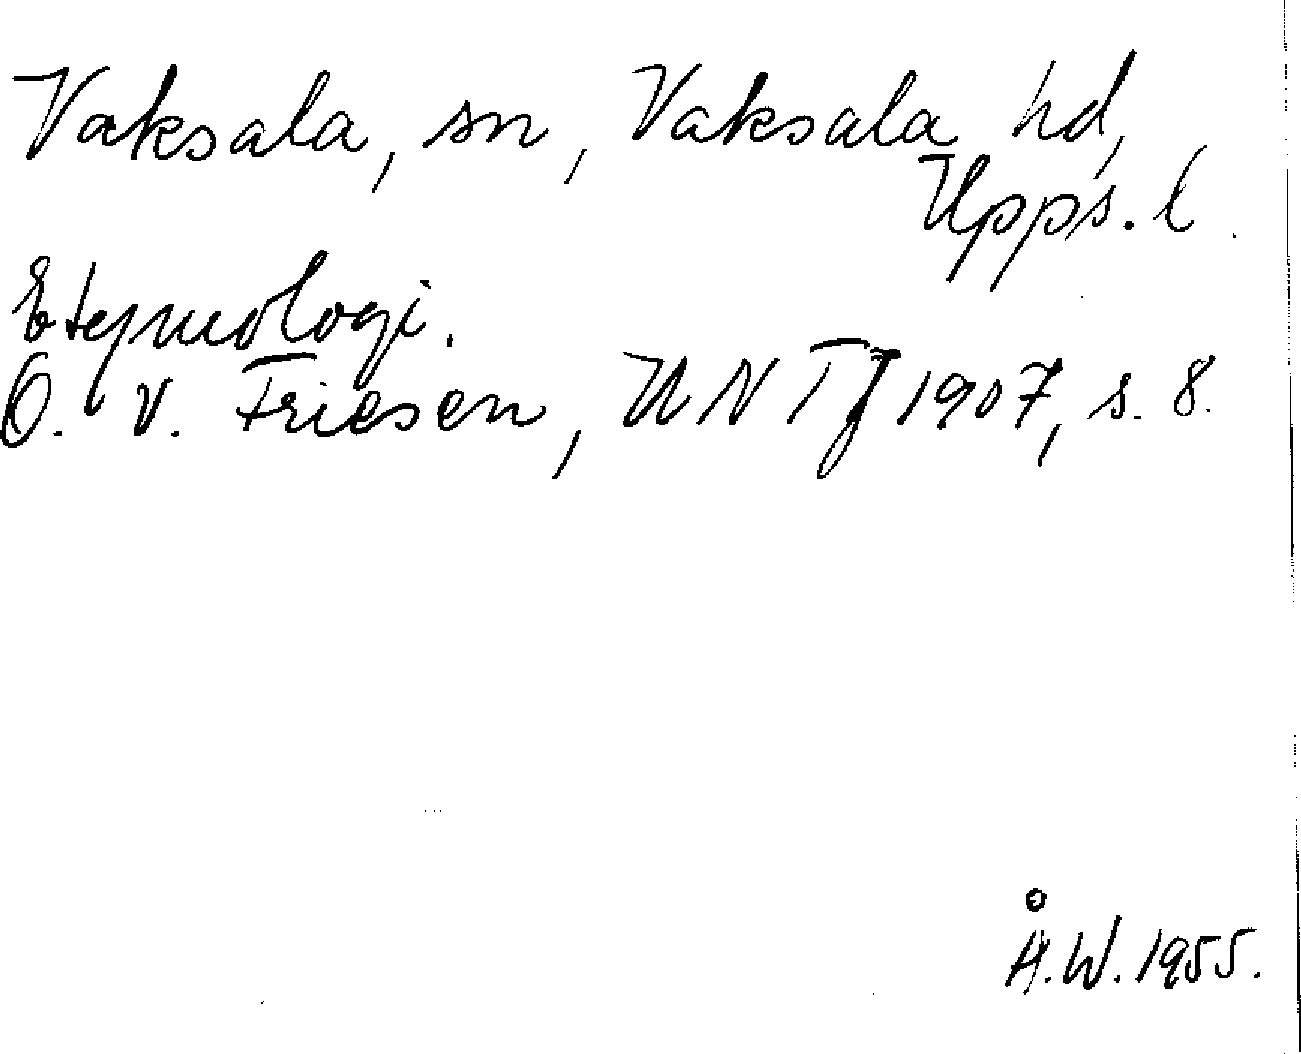 Vaksala, sn, Vaksala hd,
Upps. l.
Etymologi.
O. v. Friesen, UNT J 1907, s. 8.
Å.W. 1955.